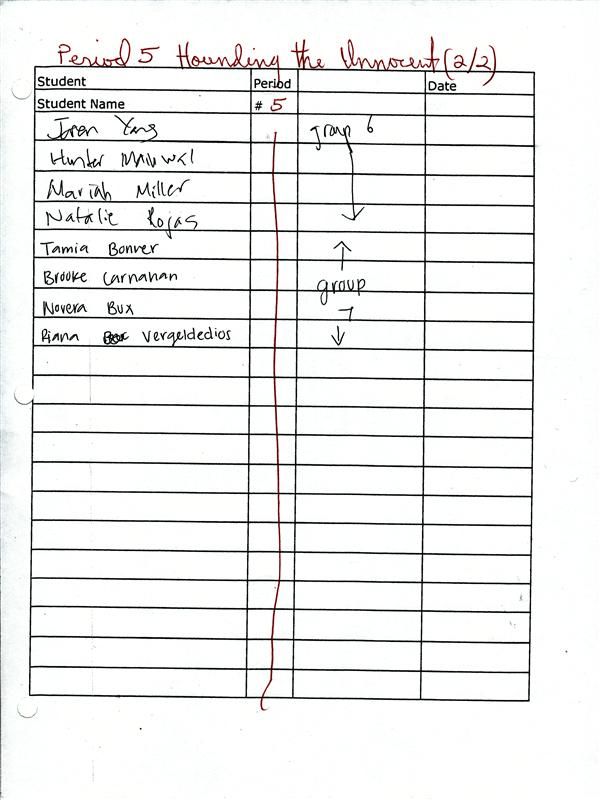 Period 5 Hounding the Innocent (2/2)
Student Period Date
Student Name # 5
Yang group 6
Hunter
Mariah Miller
Natalie Rojas
Tamia Bonner
Brooke Carnahan
group
Novera Bux
7
Riana Vergeldedios